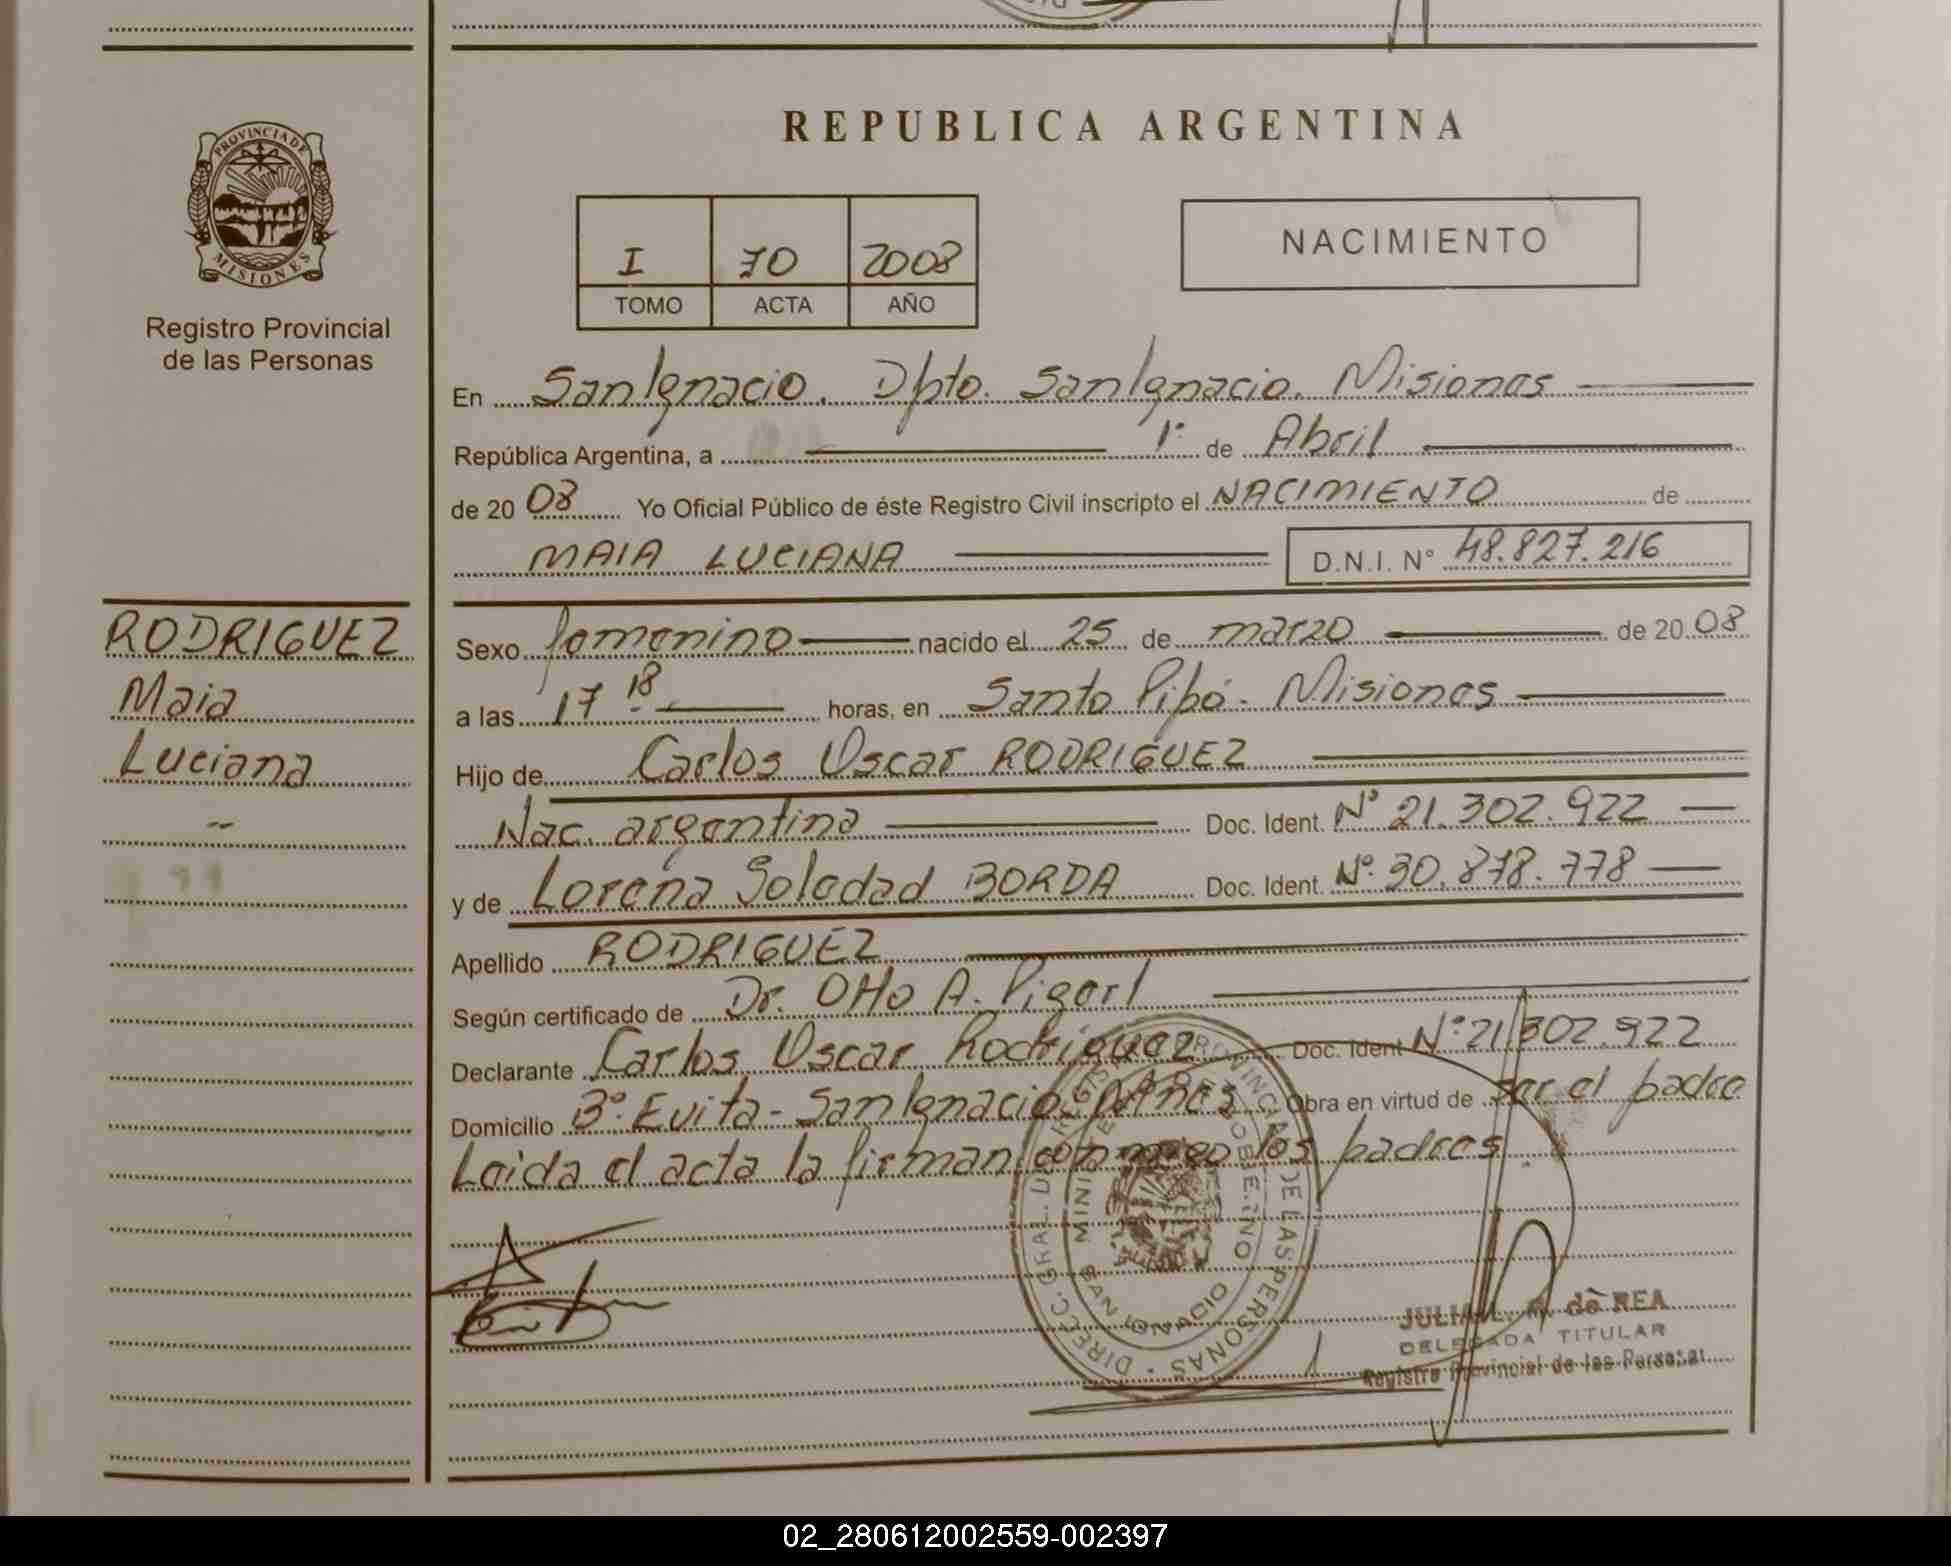 PROVINCIA DE
MISIONES
Registro Provincial
de las Personas
RODRIGUEZ
Maia
Luciana
REPUBLICA ARGENTINA
I 70 2008
TOMO ACTA AÑO
NACIMIENTO
En San Ignacio. Dpto. San Ignacio. Misiones
República Argentina, a 1° de Abril
de 20 08 Yo Oficial Público de éste Registro Civil inscripto el NACIMIENTO de
MAIA LUCIANA D.N.I. N° 48.827.216
Sexo femenino nacido el 25 de marzo de 20 08
a las 17 18 horas, en Santo Pipó - Misiones
Hijo de Carlos Oscar RODRIGUEZ
Nac. argentina Doc. Ident. N° 21.302.922
y de Lorena Soledad BORDA Doc. Ident. N° 30.878.778
Apellido RODRIGUEZ
Según certificado de Dr. Otto A.
Declarante Carlos Oscar Rodriguez Doc. Ident N° 21.302.922
Domicilio B° Evita - San Ignacio Mnes Obra en virtud de ser el padre
Leida el acta la firman conmigo los padres.
DIRECC. GRAL. DEL REGISTRO PROVINCIAL DE LAS PERSONAS
MINISTERIO DE GOBIERNO
SAN IGNACIO
de REA
DELEGADA TITULAR
Registro Provincial de las Personas
02_280612002559-002397